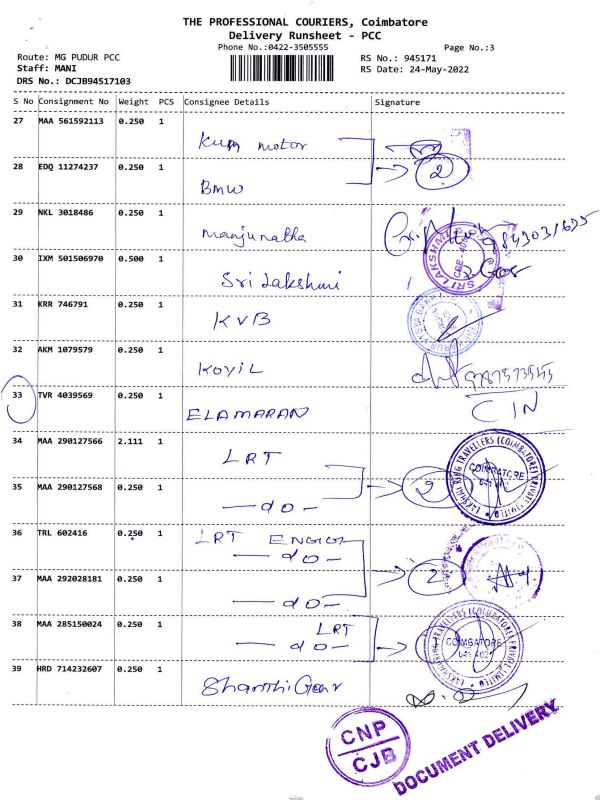 THE PROFESSIONAL COURIERS, Coimbatore
Delivery Runsheet - PCC
Phone No.:0422-3505555
Page No.:3
Route: MG PUDUR PCC
RS No.: 945171
Staff: MANI
RS Date: 24-May-2022
DRS No.: DCJB94517103
S No Consignment No Weight PCS Consignee Details Signature
27 MAA 561592113 0.250 1
Kum motor
28 EDQ 11274237 0.250 1
2
BMW
29 NKL 3018486 0.250 1
Manjunatha
30 IXM 501506970 0.500 1
Sri Lakshmi
31 KRR 746791 0.250 1
KVB
32 AKM 1079579 0.250 1
KOYIL
33 TVR 4039569 0.250 1
ELAMARAN
CIN
34 MAA 290127566 2.111 1
LRT
LAKSHMI RING TRAVELLERS (COIMBATORE) PRIVATE LIMITED
COIMBATORE
35 MAA 290127568 0.250 1
2
- do -
36 TRL 602416 0.250 1
LRT ENGG
- do -
37 MAA 292028181 0.250 1
2
- do -
38 MAA 285150024 0.250 1
LRT
- do -
LAKSHMI RING TRAVELLERS (COIMBATORE) PRIVATE LIMITED
COIMBATORE
39 HRD 714232607 0.250 1
Shanthi Gear
CNP
CJB
DOCUMENT DELIVERY